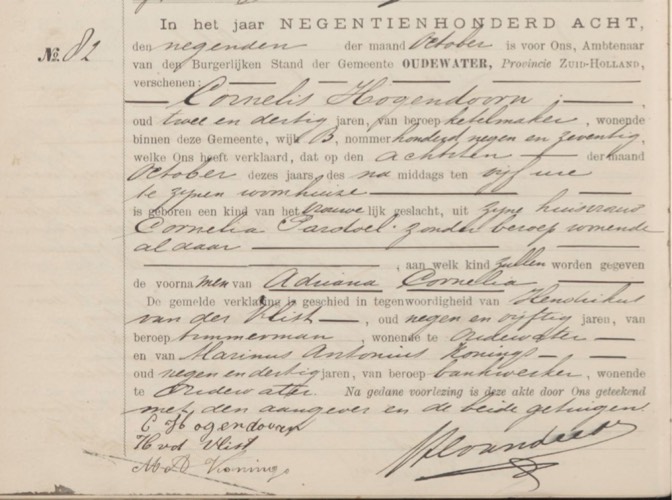 In het jaar NEGENTIENHONDERD ACHT,
No. 82
den negenden der maand October is voor Ons, Ambtenaar
van den Burgerlijken Stand der Gemeente OUDEWATER, Provincie ZUID-HOLLAND,
verschenen:
Cornelis Hogendoorn
oud twee en dertig jaren, van beroep ketelmaker, wonende
binnen deze Gemeente, wijk B, nommer honderd negen en zeventig,
welke Ons heeft verklaard, dat op den achtsten der maand
October dezes jaars, des na middags ten vijf ure
te zijnen woonhuize
is geboren een kind van het vrouwelijk geslacht, uit zijne huisvrouw
Cornelia Pardoel, zonder beroep wonende
aldaar
, aan welk kind zullen worden gegeven
de voornamen van Adriana Cornelia
De gemelde verklaring is geschied in tegenwoordigheid van Hendrikus
van der Vlist, oud negen en vijftig jaren, van
beroep timmerman, wonende te Oudewater
en van Marinus Antonius Konings
oud negen en dertig jaren, van beroep bankwerker, wonende
te Oudewater. Na gedane voorlezing is deze akte door Ons geteekend
met den aangever en de beide getuigen.
C Hogendoorn
H vd Vlist
M. A Konings